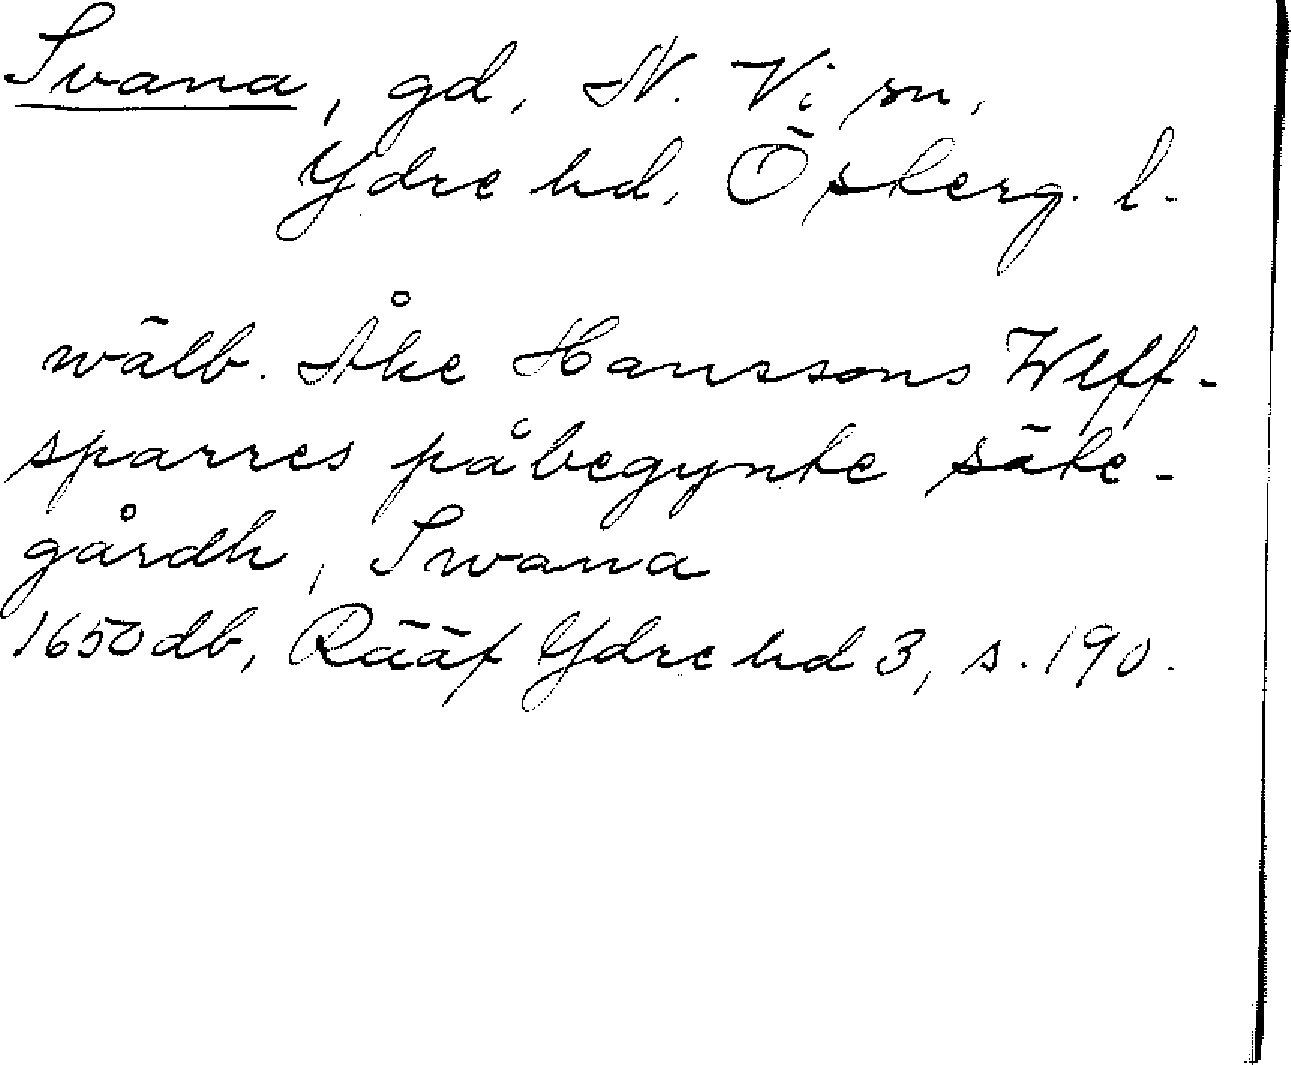 Svana, gd, N. Vi sn,
Ydre hd, Österg. l.
wälb. Åke Hanssons Ulff-
sparres påbegynte säte-
gårdh, Swana
1650 db, Rääf Ydre hd 3, s. 190.